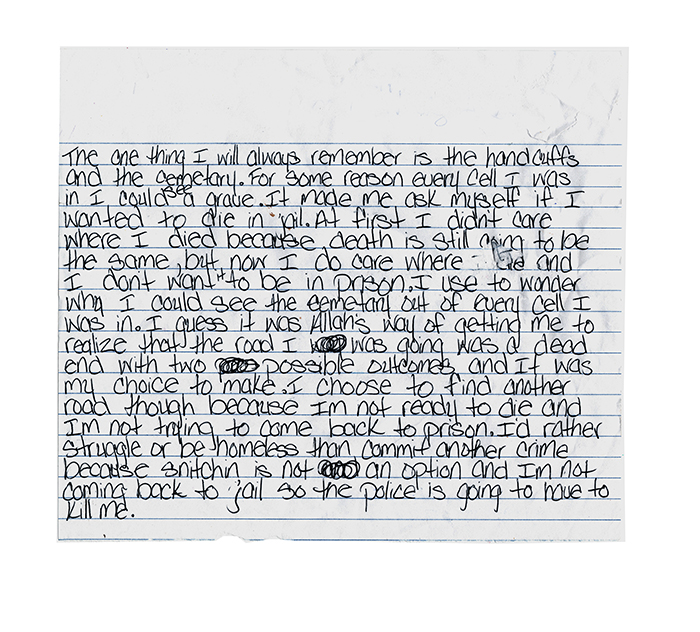 The one thing I will always remember is the handcuffs
and the cemetary. For some reason every cell I was
in I could see a grave. It made me ask myself if I
wanted to die in jail. At first I didnt care
where I died because death is still going to be
the same, but now I do care where I die and
I dont want it to be in prison. I use to wonder
why I could see the cemetary out of every cell I
was in. I guess it was Allah's way of getting me to
realize that the road I was going was a dead
end with two possible outcomes and it was
my choice to make. I choose to find another
road though because Im not ready to die and
Im not trying to come back to prison. I'd rather
struggle or be homeless than commit another crime
because snitchin is not an option and Im not
coming back to jail so the police is going to have to
kill me.